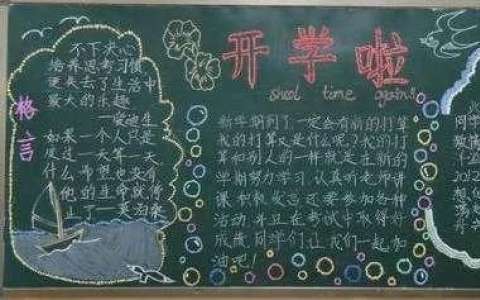 格言
不下决心
培养思考习惯
便失去了生活中
最大的乐趣
—爱迪生
如果一个人只是
度过一天算一天,
什么希望也没
他的生命
止了
开学啦
shool time agains
新学期到了,一定会有新的打算
我的打算又是什么呢?我的打
算和别人的一样就是在新的
学期努力学习,认真听老师讲
课积极发言还要参加各种
活动并且在考试中取得好
成绩同学们让我们一起加
油吧!
同学
2012
想